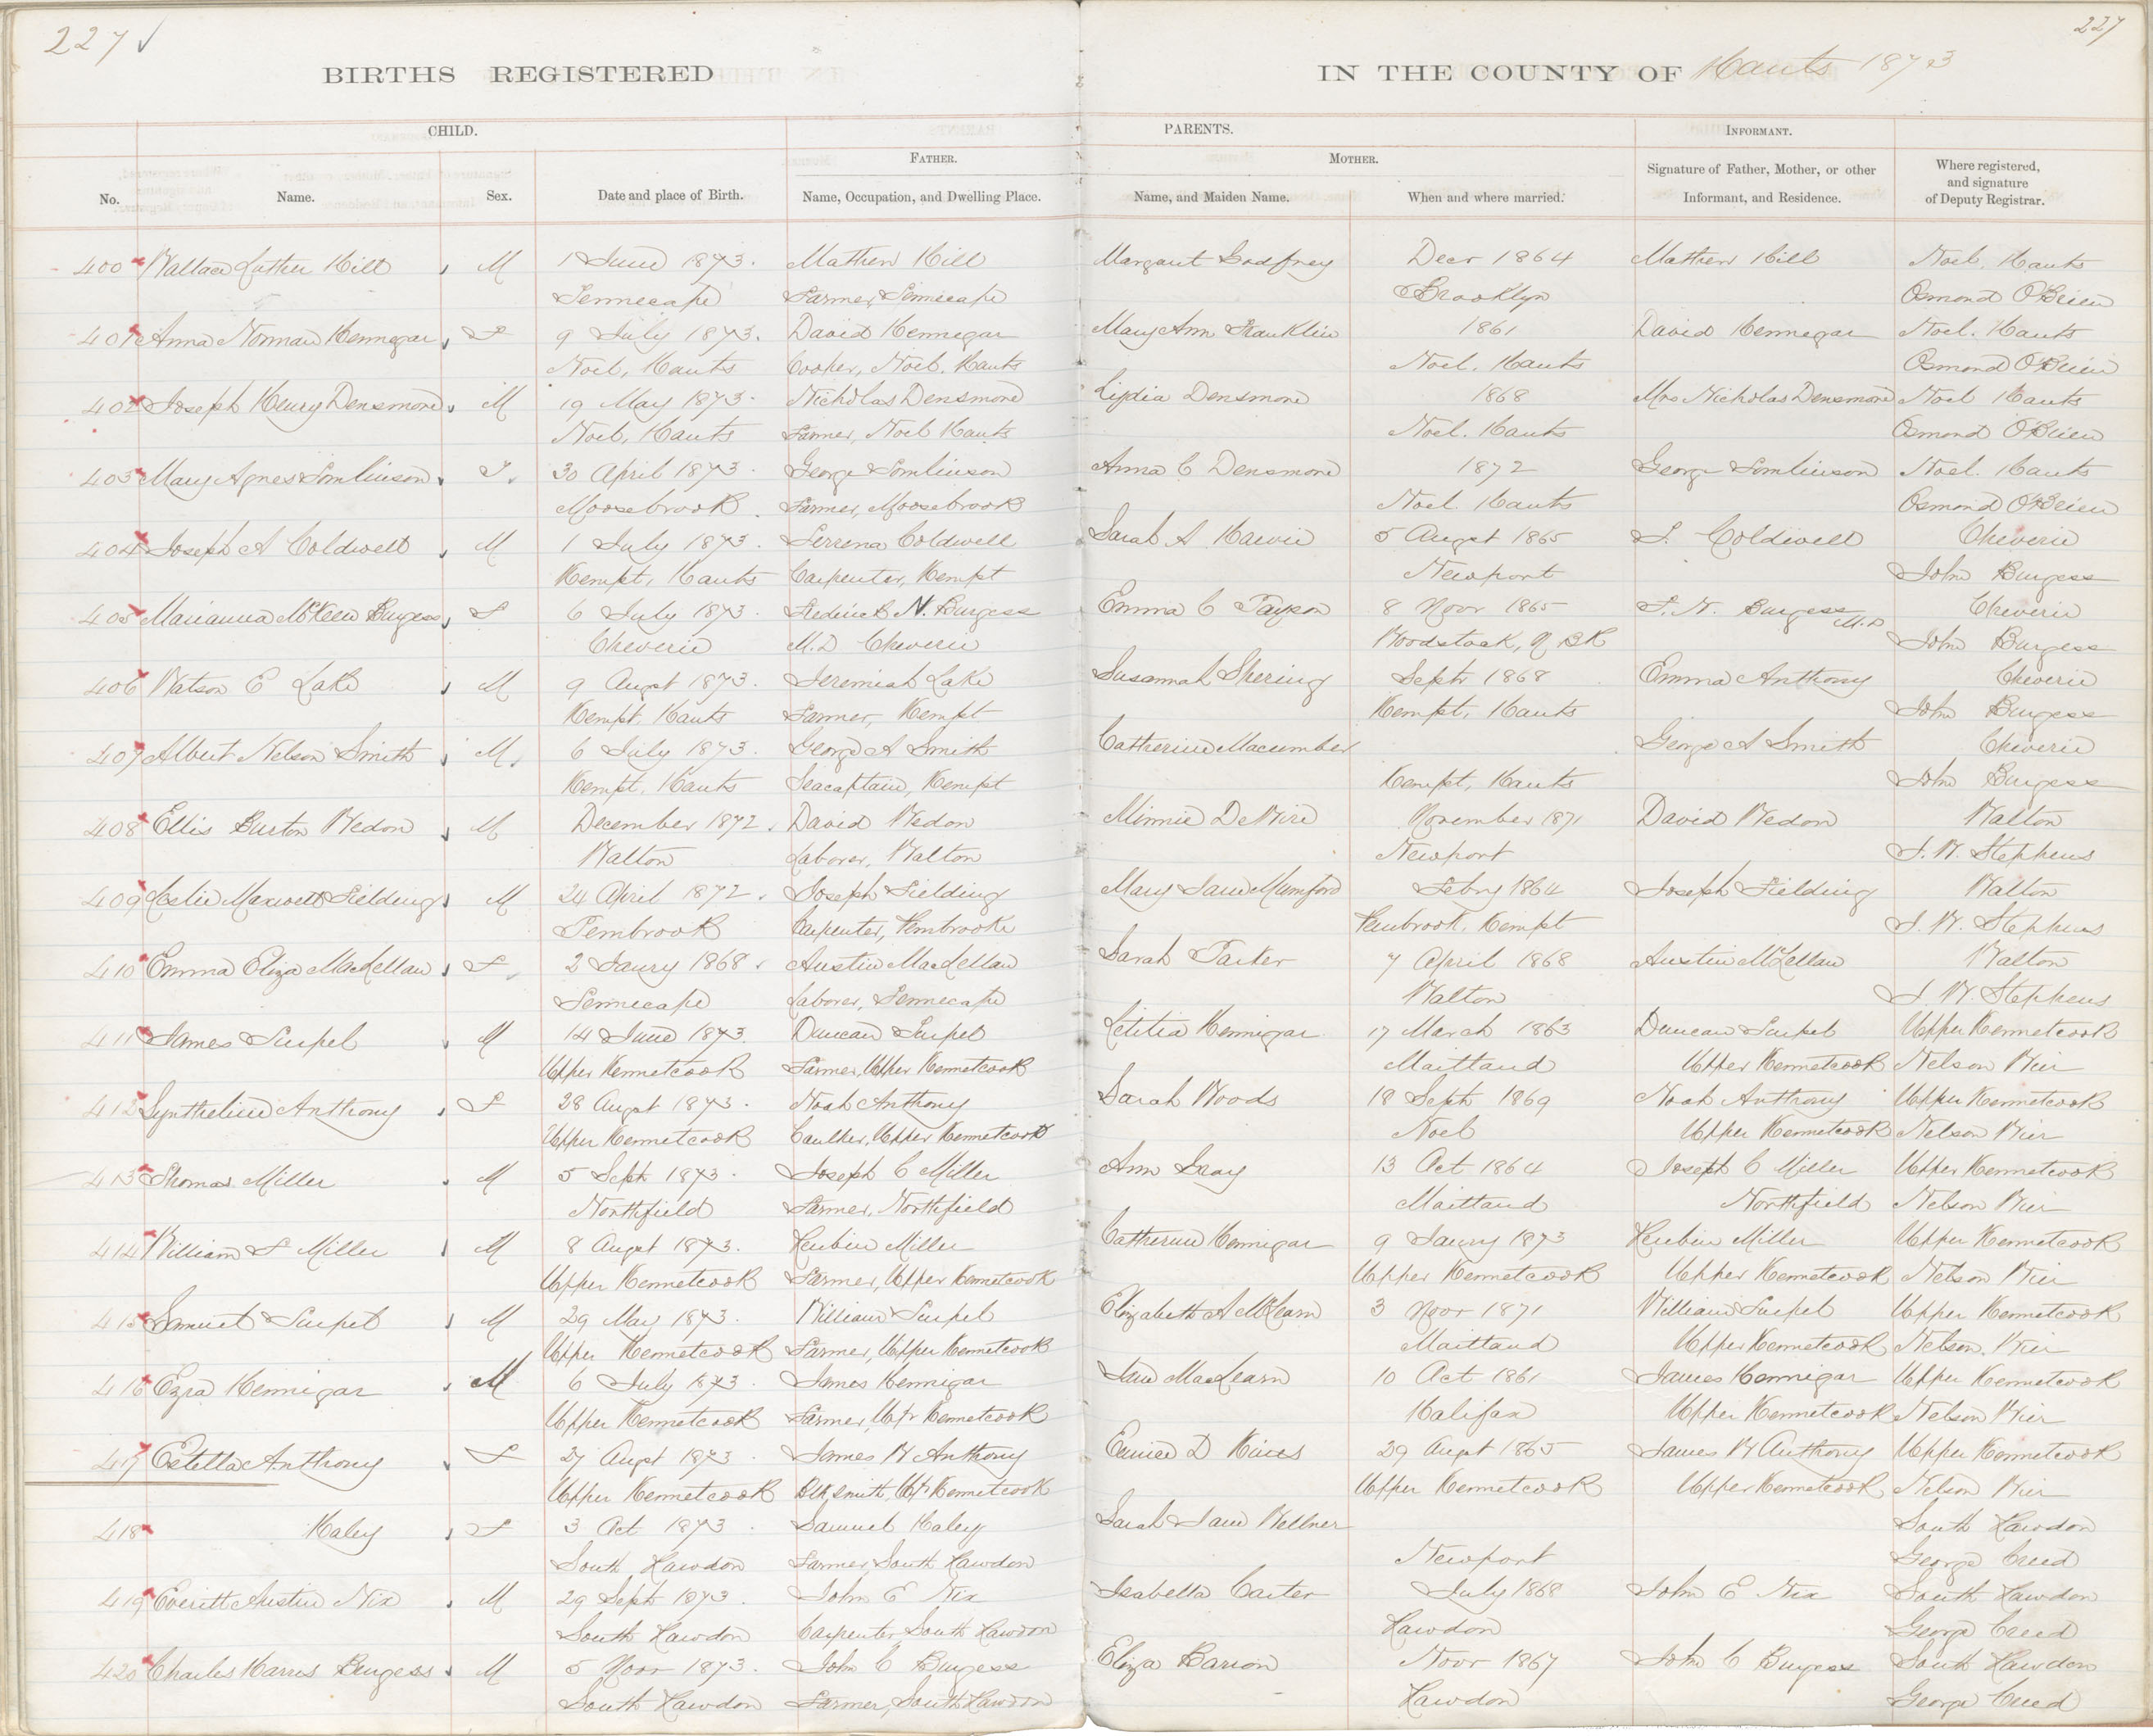 227 ✓
227
BIRTHS REGISTERED IN THE COUNTY OF Hants 1873
CHILD. PARENTS. INFORMANT.
FATHER. MOTHER.
No. Name. Sex. Date and place of Birth. Name, Occupation, and Dwelling Place. Name, and Maiden Name. When and where married. Signature of Father, Mother, or other Informant, and Residence. Where registered, and signature of Deputy Registrar.
400 Wallace Luther Hill M 1 June 1873. Mathew Hill Margaret Godfrey Decr 1864 Mathew Hill Noel, Hants
Tennecape Farmer, Tennecape Brooklyn Osmond O'Brien
401 Anna Norman Hennegar F 9 July 1873. David Hennegar Mary Ann Franklin 1861 David Hennegar Noel. Hants
Noel, Hants Cooper, Noel. Hants Noel. Hants Osmond O'Brien
402 Joseph Henry Densmore M 19 May 1873. Nicholas Densmore Lydia Densmore 1868 Mrs Nicholas Densmore Noel Hants
Noel, Hants Farmer, Noel Hants Noel. Hants Osmond O'Brien
403 Mary Agnes Tomlinson F. 30 April 1873. George Tomlinson Anna C Densmore 1872 George Tomlinson Noel. Hants
Moosebrook. Farmer, Moosebrook Noel. Hants Osmond O'Brien
404 Joseph A Coldwell M 1 July 1873. Coldwell Sarah A Harvie 5 Augst 1865 Coldwell Cheverie
Kempt, Hants Carpenter, Kempt Newport John Burgess
405 Marianna McKeen Burgess F 6 July 1873. Frederick N. Burgess Emma C Payson 8 Novr 1865 F. N. Burgess M.D Cheverie
Cheverie M.D Cheverie Woodstock, N BK John Burgess
406 Watson E Lake M 9 Augst 1873. Jeremiah Lake Susannah Shering Septr 1868 Emma Anthony Cheverie
Kempt, Hants Farmer, Kempt Kempt, Hants John Burgess
407 Albert Nelson Smith M. 6 July 1873. George A Smith Catherine Macumber George A Smith Cheverie
Kempt, Hants Seacaptain, Kempt Kempt, Hants John Burgess
408 Ellis Burton Wedon M December 1872. David Wedon Minnie DeWire November 1871 David Wedon Walton
Walton Laborer, Walton Newport J. W. Stephens
409 Leslie Maxwell Fielding M 24 April 1872. Joseph Fielding Mary Jane Mumford Febry 1864 Joseph Fielding Walton
Pembrook Carpenter, Pembrooke Pembrook, Kempt J. W. Stephens
410 Emma Eliza MacLellan F 2 Janry 1868. Austin MacLellan Sarah Parker 7 April 1868 Austin McLellan Walton
Tennecape Laborer, Tennecape Walton J. W. Stephens
411 James Surpel M 14 June 1873. Duncan Surpel Letitia Hennigar 17 March 1863 Duncan Surpel Upper Kennetcook
Upper Kennetcook Farmer, Upper Kennetcook Maitland Upper Kennetcook Nelson Wier
412 Syntheline Anthony F 28 Augst 1873. Noah Anthony Sarah Woods 18 Septr 1869 Noah Anthony Upper Kennetcook
Upper Kennetcook Caulker, Upper Kennetcook Noel Upper Kennetcook Nelson Wier
413 Thomas Miller M 5 Septr 1873. Joseph C Miller Ann Gray 13 Oct 1864 Joseph C Miller Upper Kennetcook
Northfield Farmer, Northfield Maitland Northfield Nelson Wier
414 William F Miller M 8 Augst 1873. Reubin Miller Catherine Hennigar 9 Janry 1873 Reubin Miller Upper Kennetcook
Upper Kennetcook Farmer, Upper Kennetcook Upper Kennetcook Upper Kennetcook Nelson Wier
415 Samuel Surpel M 29 May 1873. William Surpel Elizabeth A McLearn 3 Novr 1871 William Surpel Upper Kennetcook
Upper Kennetcook Farmer, Upper Kennetcook Maitland Upper Kennetcook Nelson. Wier
416 Ezra Hennigar M 6 July 1873. James Hennigar Jane MacLearn 10 Oct 1861 James Hennigar Upper Kennetcook
Upper Kennetcook Farmer, Upr Kennetcook Halifax Upper Kennetcook Nelson Wier
417 Estella Anthony F 27 Augt 1873. James W Anthony Eunice D Hines 29 Augst 1865 James W Anthony Upper Kennetcook
Upper Kennetcook Blk, smith, Upr Kennetcook Upper Kennetcook Upper Kennetcook Nelson Wier
418 Haley F 3 Oct 1873. Samuel Haley Sarah Jane Wellner South Rawdon
South Rawdon Farmer, South Rawdon Newport George Creed
419 Everitt Austin Nix M 29 Septr 1873. John E Nix Isabella Carter July 1868 John E Nix South Rawdon
South Rawdon Carpenter South Rawdon Rawdon George Creed
420 Charles Harris Burgess M 5 Novr 1873. John C Burgess Eliza Barron Novr 1867 John C Burgess South Rawdon
South Rawdon Farmer, South Rawdon Rawdon George Creed